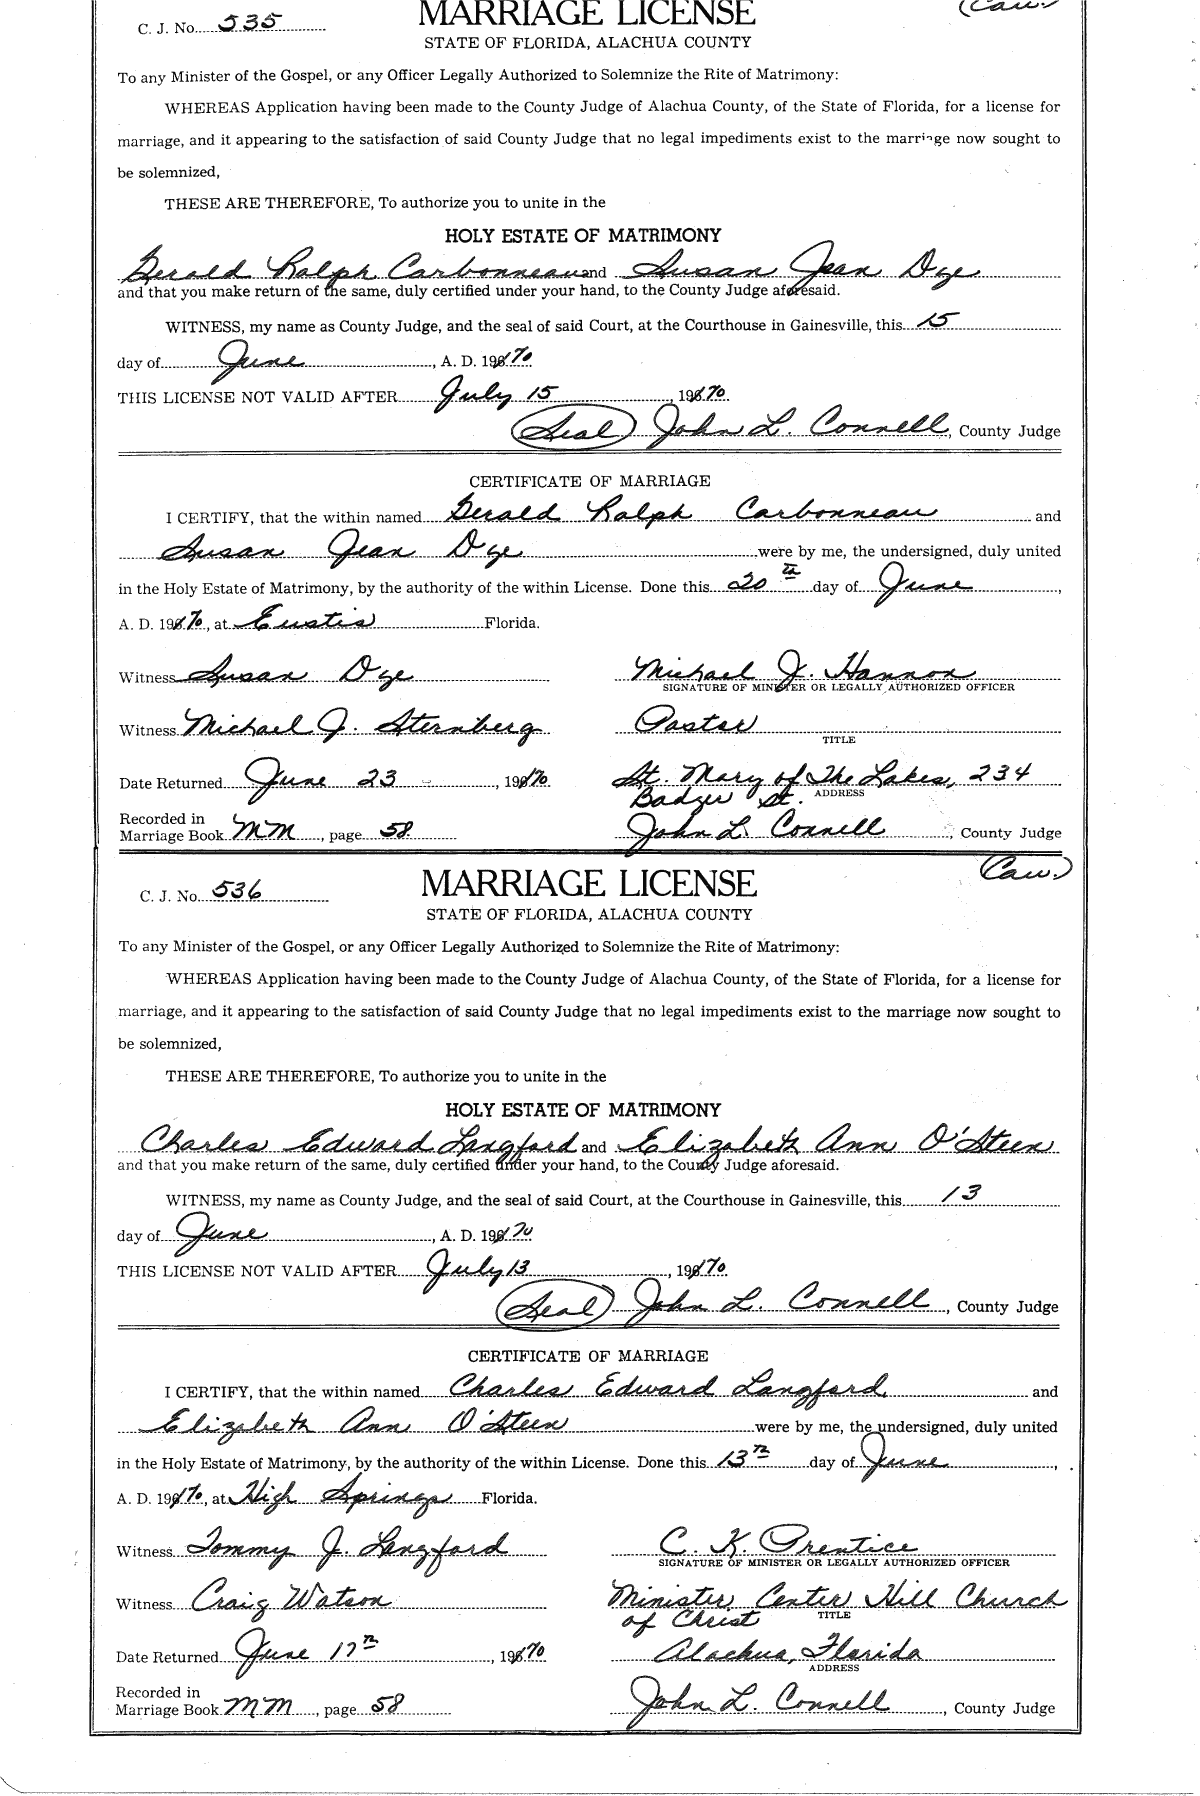 C. J. No. 535
MARRIAGE LICENSE
(Caw.)
STATE OF FLORIDA, ALACHUA COUNTY
To any Minister of the Gospel, or any Officer Legally Authorized to Solemnize the Rite of Matrimony:
WHEREAS Application having been made to the County Judge of Alachua County, of the State of Florida, for a license for
marriage, and it appearing to the satisfaction of said County Judge that no legal impediments exist to the marriage now sought to
be solemnized,
THESE ARE THEREFORE, To authorize you to unite in the
HOLY ESTATE OF MATRIMONY
Gerald Ralph Carbonneau and Susan Jean Dye
and that you make return of the same, duly certified under your hand, to the County Judge aforesaid.
WITNESS, my name as County Judge, and the seal of said Court, at the Courthouse in Gainesville, this 15
day of June, A. D. 1970
THIS LICENSE NOT VALID AFTER July 15, 1970.
(Seal) John L. Connell, County Judge
CERTIFICATE OF MARRIAGE
I CERTIFY, that the within named Gerald Ralph Carbonneau and
Susan Jean Dye were by me, the undersigned, duly united
in the Holy Estate of Matrimony, by the authority of the within License. Done this 20th day of June,
A. D. 1970, at Eustis Florida.
Witness Susan Dye Michael J. Hannon
SIGNATURE OF MINISTER OR LEGALLY AUTHORIZED OFFICER
Witness Michael J. Sternberg Pastor
TITLE
Date Returned June 23, 1970 St. Mary of The Lakes, 234
Badger St. ADDRESS
Recorded in
Marriage Book MM, page 58 John L. Connell, County Judge
(Caw.)
C. J. No. 536
MARRIAGE LICENSE
STATE OF FLORIDA, ALACHUA COUNTY
To any Minister of the Gospel, or any Officer Legally Authorized to Solemnize the Rite of Matrimony:
WHEREAS Application having been made to the County Judge of Alachua County, of the State of Florida, for a license for
marriage, and it appearing to the satisfaction of said County Judge that no legal impediments exist to the marriage now sought to
be solemnized,
THESE ARE THEREFORE, To authorize you to unite in the
HOLY ESTATE OF MATRIMONY
Charles Edward Langford and Elizabeth Ann O'Steen
and that you make return of the same, duly certified under your hand, to the County Judge aforesaid.
WITNESS, my name as County Judge, and the seal of said Court, at the Courthouse in Gainesville, this 13
day of June, A. D. 1970
THIS LICENSE NOT VALID AFTER July 13, 1970.
(Seal) John L. Connell, County Judge
CERTIFICATE OF MARRIAGE
I CERTIFY, that the within named Charles Edward Langford and
Elizabeth Ann O'Steen were by me, the undersigned, duly united
in the Holy Estate of Matrimony, by the authority of the within License. Done this 13th day of June,
A. D. 1970, at High Springs Florida.
Witness Tommy J. Langford C. K. Prentice
SIGNATURE OF MINISTER OR LEGALLY AUTHORIZED OFFICER
Witness Craig Watson Minister, Center Hill Church
of Christ TITLE
Date Returned June 17th, 1970 Alachua, Florida
ADDRESS
Recorded in
Marriage Book MM, page 58 John L. Connell, County Judge